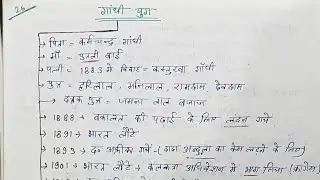 26
गांधी युग
पिता = कर्मचन्द्र गांधी
माँ = पुतली बाई
पत्नी = 1883 में विवाह = कस्तूरबा गाँधी
पुत्र = हरिलाल, मनिलाल, रामदास देवदास
दत्तक पुत्र = जमना लाल बजाज
1888 = वकालत की पढ़ाई के लिए लंदन गये
1891 = भारत लौटे
1893 = द० अफ्रीका गये - (दादा अब्दुला का केस लड़ने के लिए)
1901 = भारत लौटे = कलकत्ता अधिवेशन में भाग लिया (कांग्रेस)